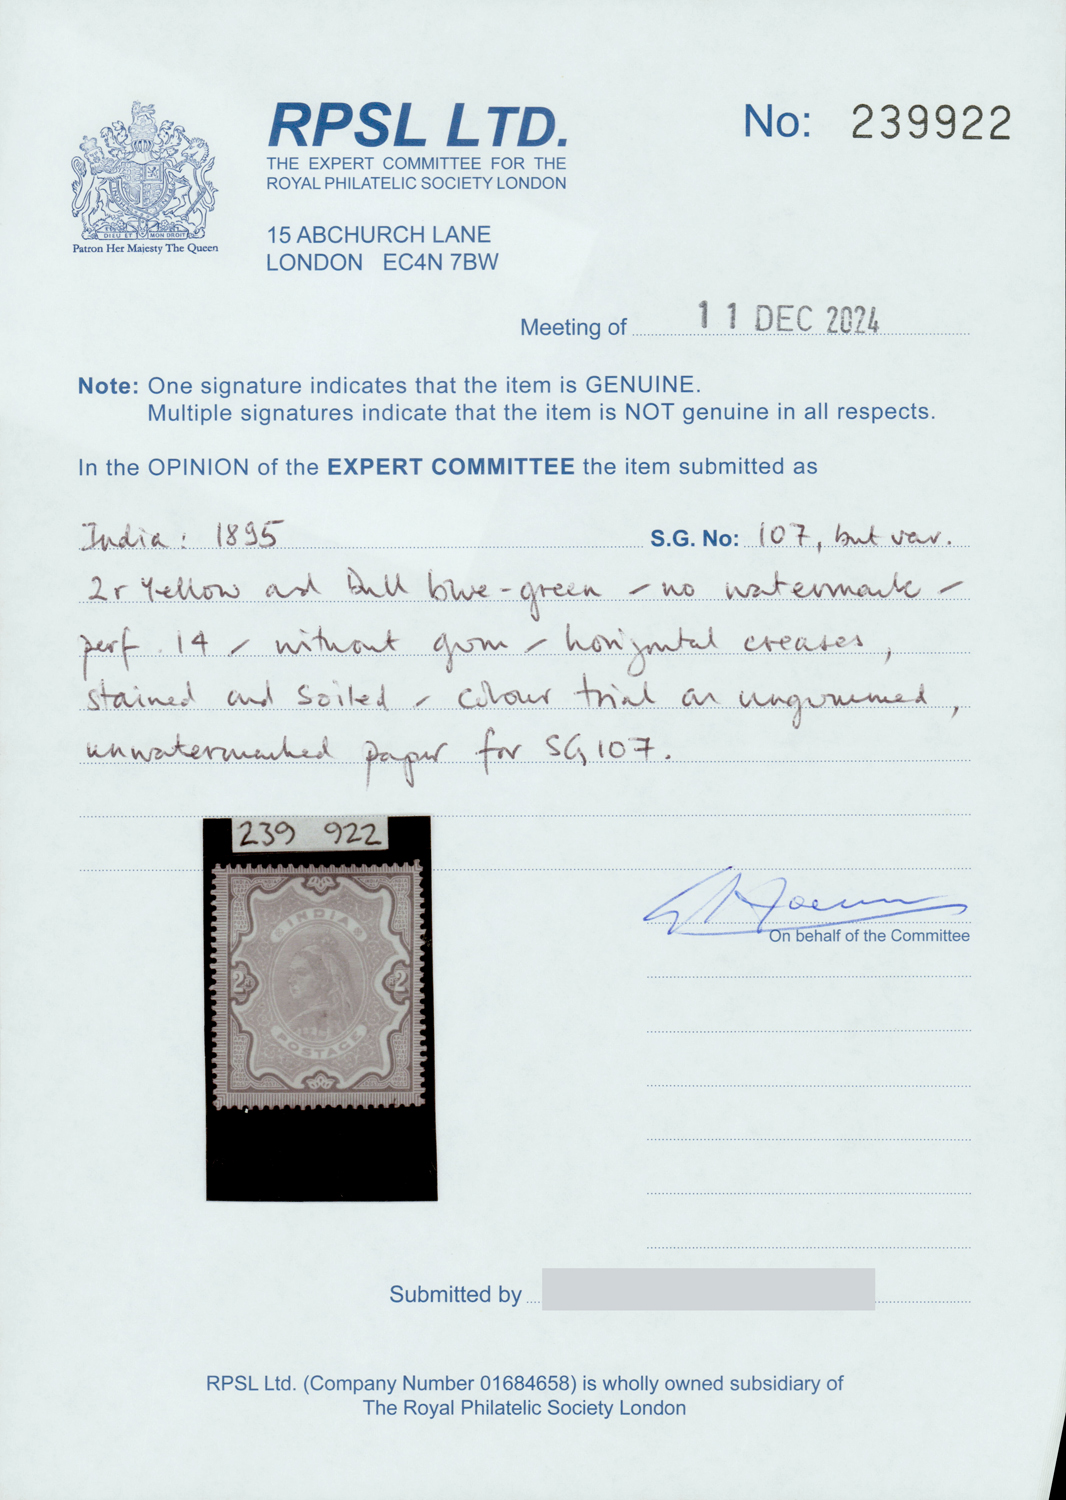 RPSL LTD.
THE EXPERT COMMITTEE FOR THE
ROYAL PHILATELIC SOCIETY LONDON
15 ABCHURCH LANE
LONDON EC4N 7BW
No: 239922
DIEU ET MON DROIT
Patron Her Majesty The Queen
Meeting of 11 DEC 2024
Note: One signature indicates that the item is GENUINE.
Multiple signatures indicate that the item is NOT genuine in all respects.
In the OPINION of the EXPERT COMMITTEE the item submitted as
India: 1895 S.G. No: 107, but var.
2r Yellow and Dull blue-green – no watermark –
perf. 14 – without gum – horizontal creases,
stained and soiled – colour trial on ungummed,
unwatermarked paper for SG107.
239 922
INDIA
2 2
POSTAGE
On behalf of the Committee
Submitted by
RPSL Ltd. (Company Number 01684658) is wholly owned subsidiary of
The Royal Philatelic Society London